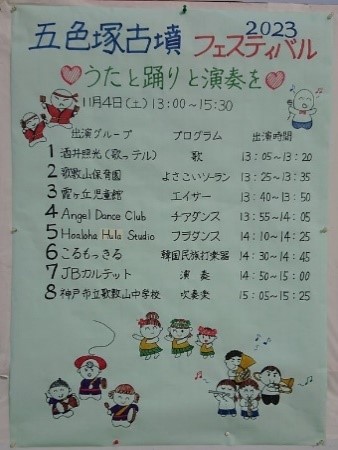 五色塚古墳 フェスティバル 2023
♡うたと踊りと演奏を♡
11月4日(土) 13:00~15:30
出演グループ プログラム 出演時間
1 酒井照光(歌っテル) 歌 13:05~13:20
2 歌敷山保育園 よさこいソーラン 13:25~13:35
3 霞ヶ丘児童館 エイサー 13:40~13:50
4 Angel Dance Club チアダンス 13:55~14:05
5 Hoaloha Hula Studio フラダンス 14:10~14:25
6 こるもっきる 韓国民族打楽器 14:30~14:45
7 JBカルテット 演奏 14:50~15:00
8 神戸市立歌敷山中学校 吹奏楽 15:05~15:25